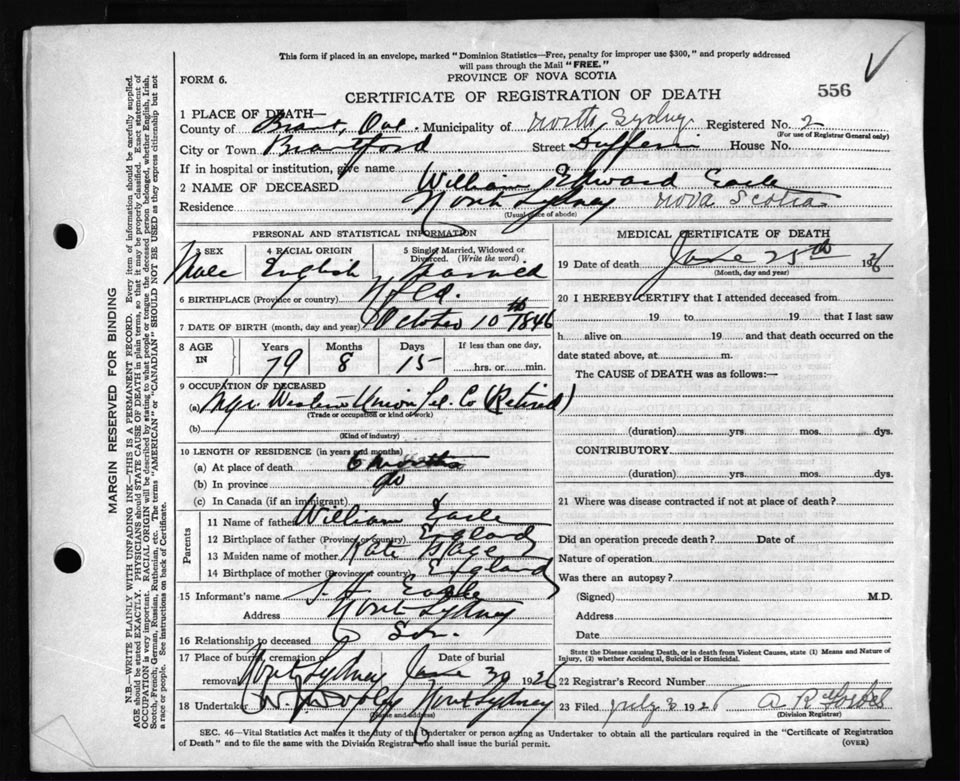 This form if placed in an envelope, marked "Dominion Statistics—Free, penalty for improper use $300," and properly addressed
will pass through the Mail "FREE."
FORM 6.
PROVINCE OF NOVA SCOTIA
CERTIFICATE OF REGISTRATION OF DEATH
556
1 PLACE OF DEATH—
County of Brant, Ont. Municipality of North Sydney Registered No. 2
(For use of Registrar General only)
City or Town Brantford Street Dufferin House No.
If in hospital or institution, give name
2 NAME OF DECEASED William Edward Earle
Residence North Sydney Nova Scotia
(Usual place of abode)
PERSONAL AND STATISTICAL INFORMATION
3 SEX 4 RACIAL ORIGIN 5 Single, Married, Widowed or
Divorced. (Write the word)
Male English Married
6 BIRTHPLACE (Province or country) Nfld.
7 DATE OF BIRTH (month, day and year) October 10th 1846
8 AGE IN Years Months Days If less than one day,
79 8 15 hrs. or min.
9 OCCUPATION OF DECEASED
(a) Mgr. Western Union Tel. Co (Retired)
(Trade or occupation or kind of work)
(b)
(Kind of industry)
10 LENGTH OF RESIDENCE (in years and months)
(a) At place of death 6 months
(b) In province
(c) In Canada (if an immigrant)
Parents
11 Name of father William Earle
12 Birthplace of father (Province or country) England
13 Maiden name of mother Kate
14 Birthplace of mother (Province or country) England
15 Informant's name Earle
Address North Sydney
16 Relationship to deceased Son.
17 Place of burial, cremation or Date of burial
removal North Sydney June 30 1926
18 Undertaker North Sydney
(Name and address)
MEDICAL CERTIFICATE OF DEATH
19 Date of death June 25th 1926
(Month, day and year)
20 I HEREBY CERTIFY that I attended deceased from
19 to 19 that I last saw
h alive on 19 and that death occurred on the
date stated above, at m.
The CAUSE of DEATH was as follows:—
(duration) yrs. mos. dys.
CONTRIBUTORY
(duration) yrs. mos. dys.
21 Where was disease contracted if not at place of death?
Did an operation precede death? Date of
Nature of operation
Was there an autopsy?
(Signed) M.D.
Address
Date
State the Disease causing Death, or in death from Violent Causes, state (1) Means and Nature of
Injury, (2) whether Accidental, Suicidal or Homicidal.
22 Registrar's Record Number
23 Filed July 3 192 A R Forbes
(Division Registrar)
SEC. 46—Vital Statistics Act makes it the duty of the Undertaker or person acting as Undertaker to obtain all the particulars required in the "Certificate of Registration
of Death" and to file the same with the Division Registrar who shall issue the burial permit.
(OVER)
MARGIN RESERVED FOR BINDING
N.B.—WRITE PLAINLY WITH UNFADING INK—THIS IS A PERMANENT RECORD. Every item of information should be carefully supplied.
AGE should be stated EXACTLY. PHYSICIANS should STATE CAUSE OF DEATH in plain terms, so that it may be properly classified. Exact statement of
OCCUPATION is very important. RACIAL ORIGIN will be described by stating to what people or tongue the deceased person belonged, whether English, Irish,
Scotch, French, German, Russian, Ruthenian, etc. The terms "AMERICAN" or "CANADIAN" SHOULD NOT BE USED as they express citizenship but not
a race or people. See instructions on back of Certificate.